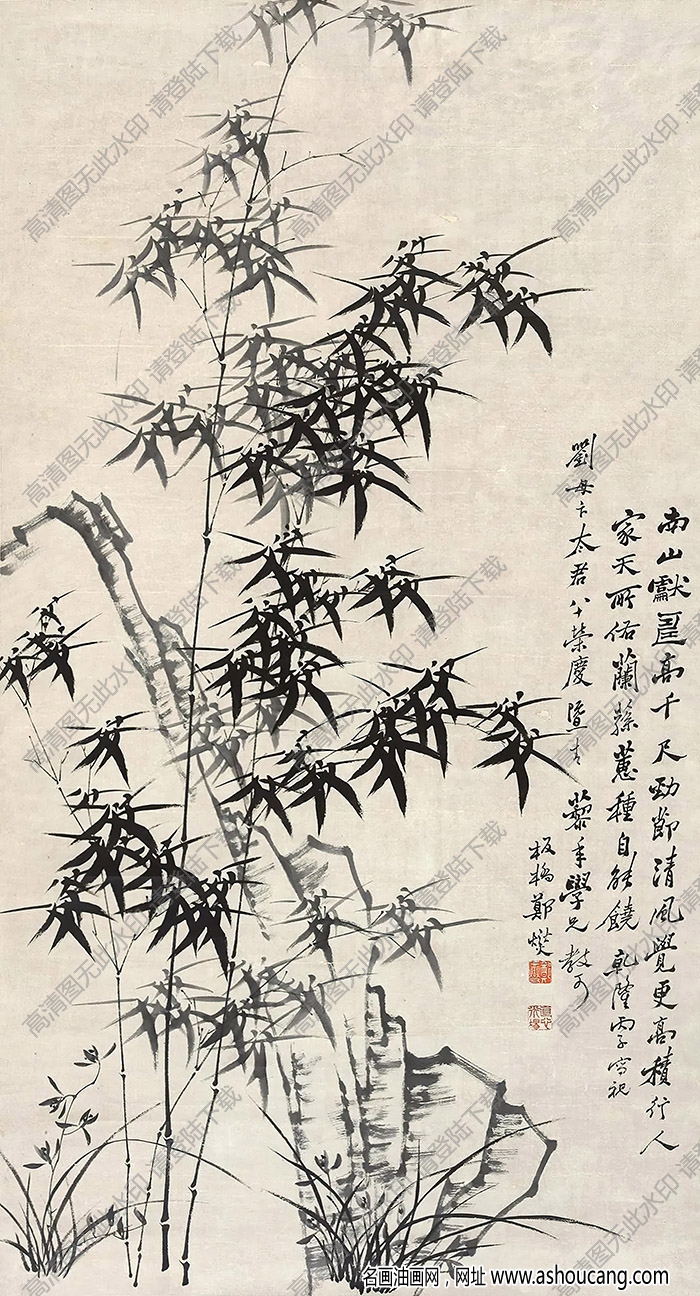 南山獻壽高千尺勁節清風覺更高積行人
家天所佑蘭蓀蕙種自能饒 乾隆丙子寫祝
劉母卞太君八十榮慶暨青藜年學兄教可
板橋鄭燮
高清图无此水印 请登陆下载
名画油画网，网址 www.ashoucang.com